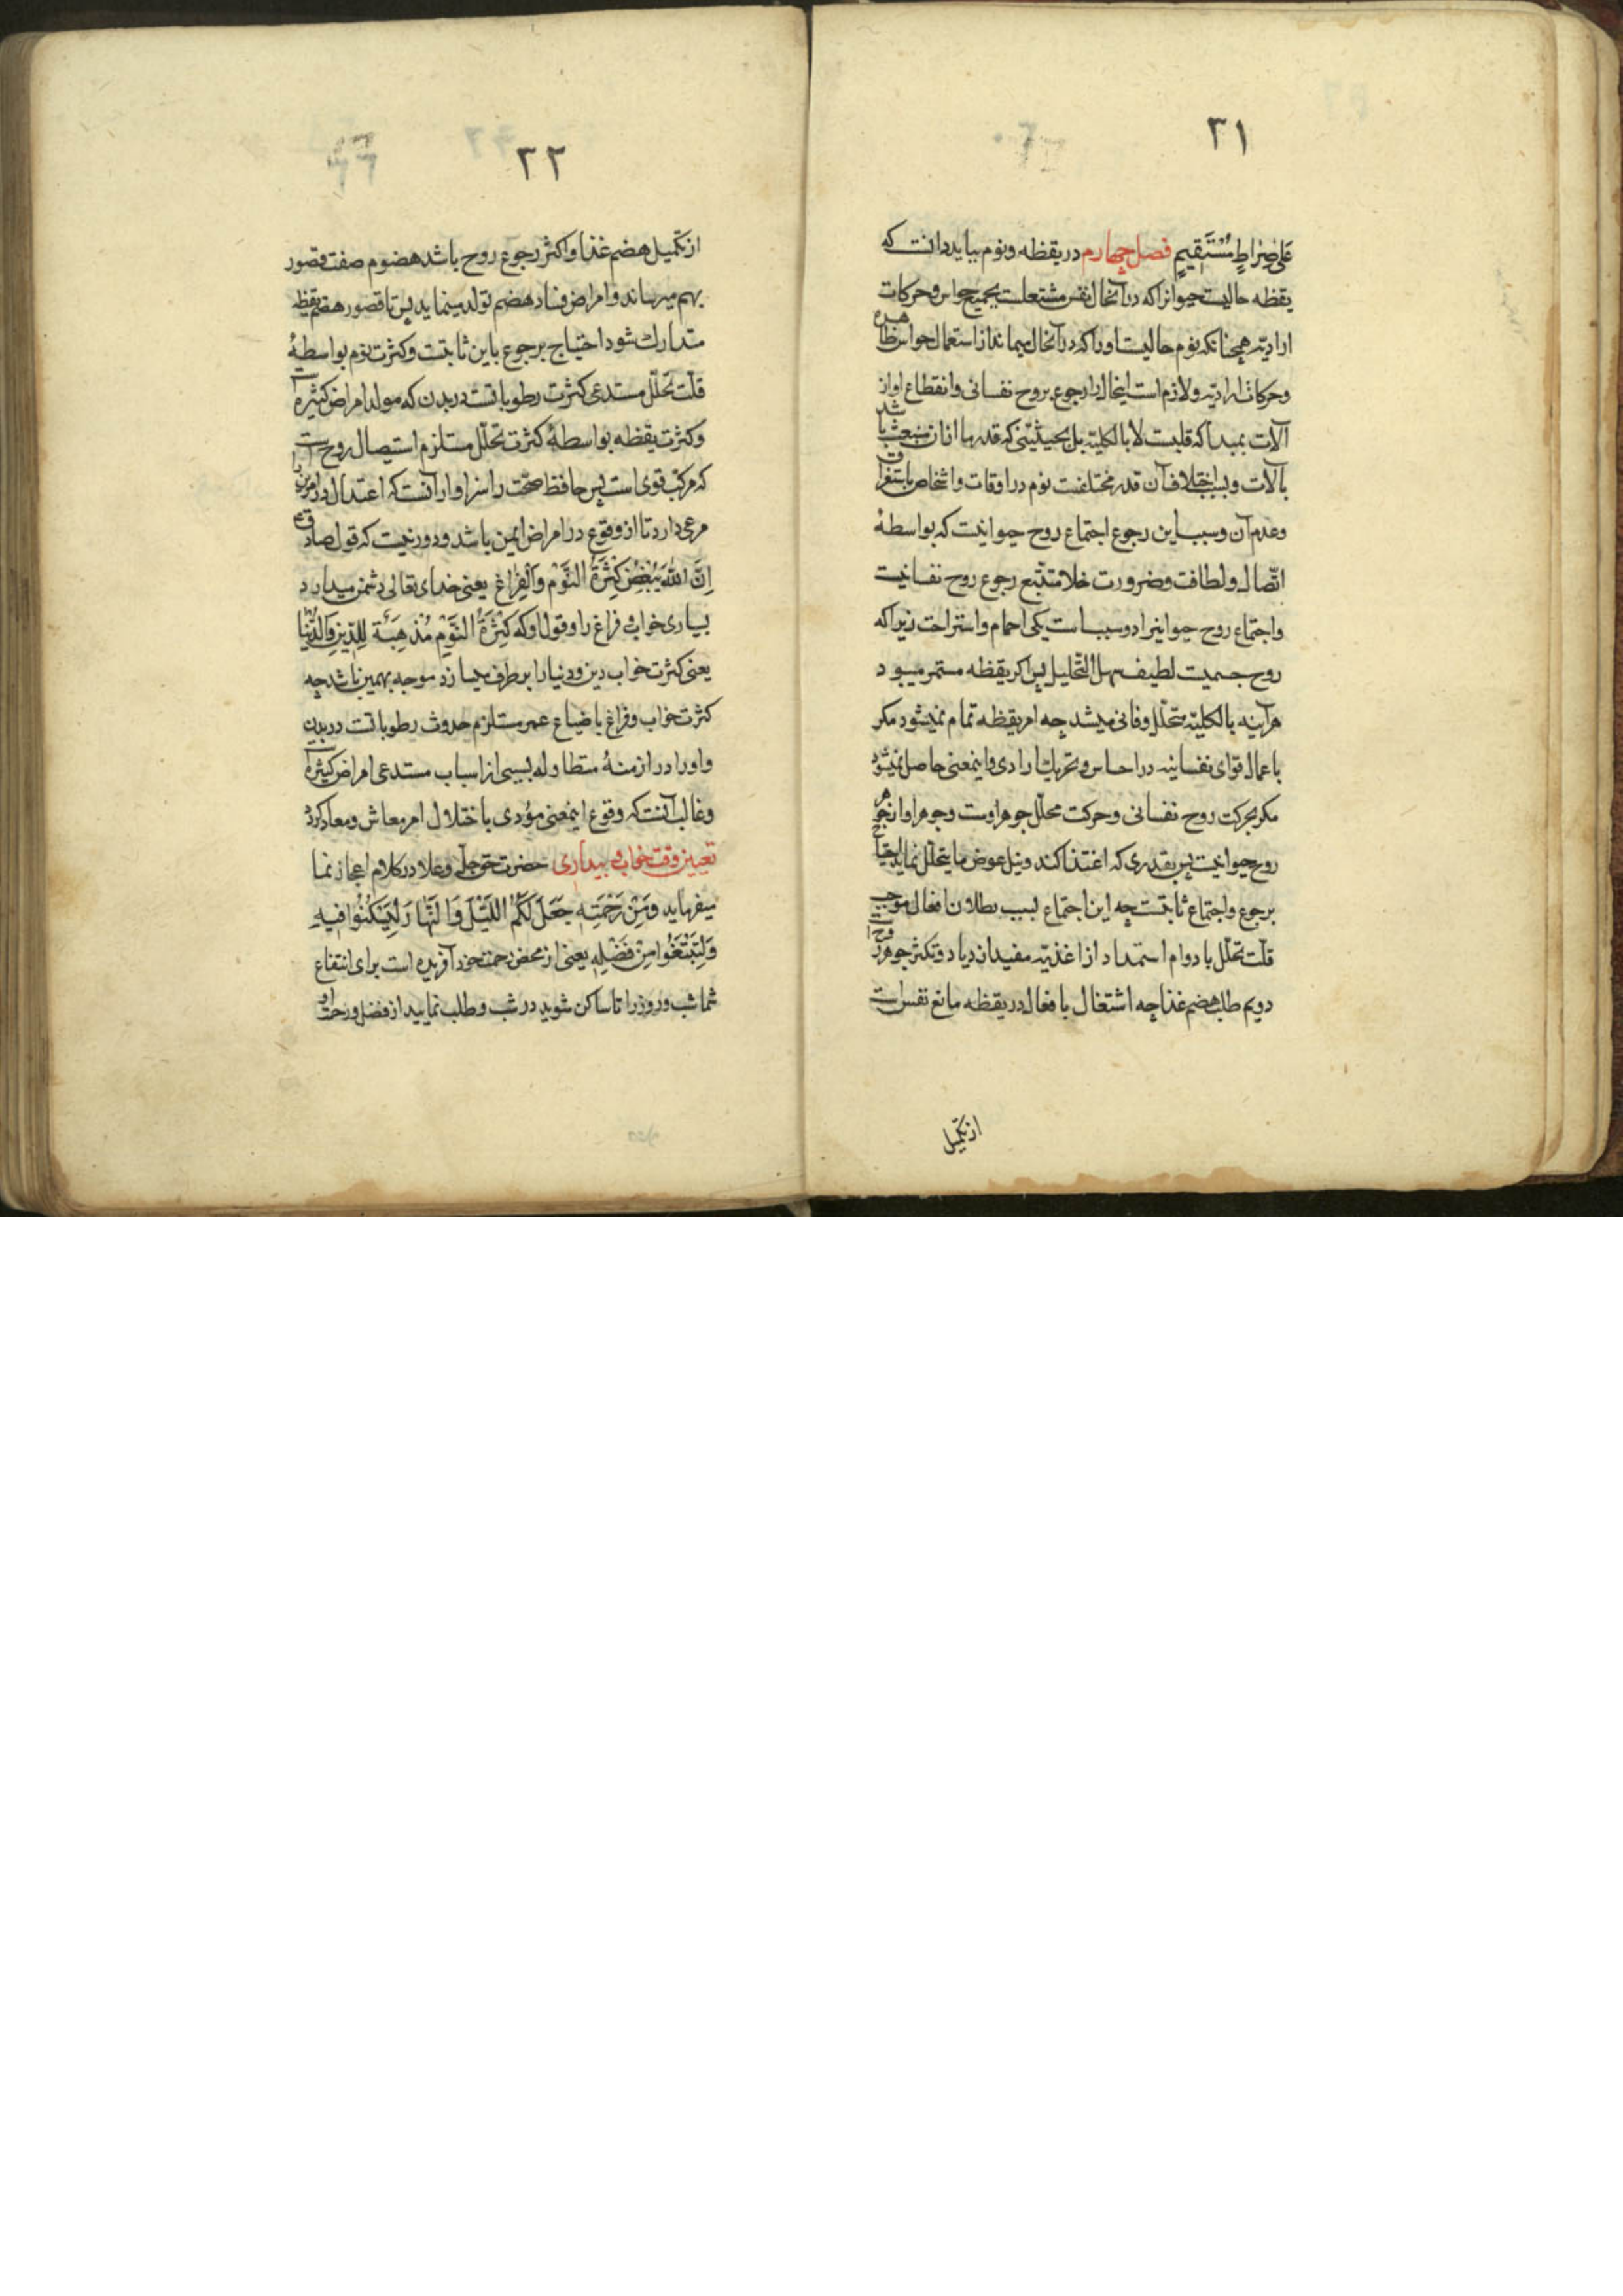 ۳۱
عَلیٰ صِرَاطٍ مُسْتَقِیمٍ فصل چهارم در یقظه و نوم بباید دانست که
یقظه حالیست حیوانرا که در آنحال نفس مشتعلست بجمیع حواس و حرکات
ارادیّه همچنانکه نوم حالیست اورا که در آنحال میماند از استعمال حواس ظاهره
و حرکات ارادیّه و لازم است اینحال را رجوع بروح نفسانی و انقطاع او از
آلات بمبدأ که قلبست لا بالکلیّه بل بحیثیّتی که قدر ما ازان منبعث باشد
بآلات و بسبب اختلاف آن قدر مختلفست نوم در اوقات و اشخاص باستغراق
و عدم آن و سبب این رجوع اجتماع روح حیوانیست که بواسطهٔ
اتّصال و لطافت و ضرورت خلا متتبّع رجوع روح نفسانیست
و اجتماع روح حیوانیرا دو سبب است یکی احمام و استراحت زیرا که
روح جسمیست لطیف سهل التحلیل پس اکر یقظه مستمر میبود
هرآینه بالکلیّه متحلّل و فانی میشد چه امر یقظه تمام نمیشود مکر
باعمال قوای نفسانیه در احساس و تحریک ارادی و اینمعنی حاصل نمیشود
مکر بحرکت روح نفسانی و حرکت محلّل جوهر اوست و جوهر او از جوهر
روح حیوانیست پس بقدری که اغتذا کند و نیل عوض ما یتحلّل نماید احتیاج
برجوع و اجتماع ثابتست چه این اجتماع بسبب بطلان افعال موجب
قلّت تحلّل با دوام استمداد از اغذیّه مفید ازدیاد و تکثر جوهر روح است
دویم طلب هضم غذا چه اشتغال بافعال در یقظه مانع نفس است
از تکمیل
۳۲
از تکمیل هضم غذا و اکثر رجوع روح باشد هضوم صفت قصور
بهم میرساند و امراض فساد هضم تولد مینماید پس تا قصور هضم یقظه
متدارک شود احتیاج برجوع باین ثابتست و کثرت نوم بواسطهٔ
قلّت تحلّل مستدعی کثرت رطوباتست در بدن که مولد امراض کثیره است
و کثرت یقظه بواسطهٔ کثرت تحلّل مستلزم استیصال روح است
که مرکب قوی است پس حافظ صحّت را سزاوار آنست که اعتدال در امرین را
مرعی دارد تا از وقوع در امراض ایمن باشد و دور نیست که قول صادق ع
اِنَّ اللهَ یُبْغِضُ کَثْرَةَ النَّوْمِ وَ الْفِرَاغِ یعنی خدای تعالی دشمن میدارد
بسیاری خواب و فراغ را و قول او که کَثْرَةُ النَّوْمِ مُذْهِبَةٌ لِلدِّینِ وَ الدُّنْیَا
یعنی کثرت خواب دین و دنیا را برطرف میسازد موجه بهمین باشد چه
کثرت خواب و فراغ با ضیاع عمر مستلزم حدوث رطوباتست در بدن
و اورا در ازمنهٔ متطاوله بسببی از اسباب مستدعی امراض کثیره است
و غالب آنست که وقوع اینمعنی مؤدی باختلال امر معاش و معاد کردد
تعیین وقت خواب و بیداری حضرت حق جلّ و علا در کلام اعجاز نما
میفرماید وَمِنْ رَحْمَتِهِ جَعَلَ لَکُمُ اللَّیْلَ وَ النَّهَارَ لِتَسْکُنُوا فِیهِ
وَلِتَبْتَغُوا مِنْ فَضْلِهِ یعنی از محض رحمت خود آفریده است برای انتفاع
شما شب و روز را تا ساکن شوید در شب و طلب نمایید از فضل و رحمت او